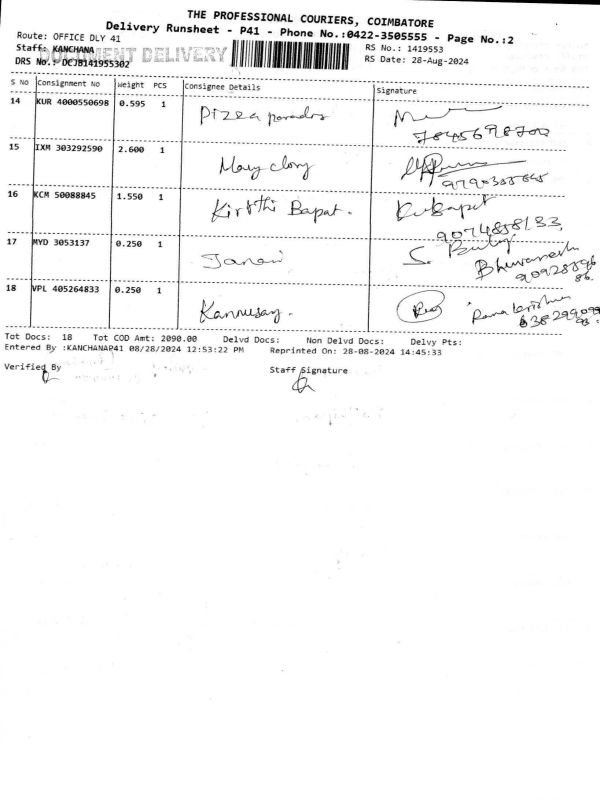 THE PROFESSIONAL COURIERS, COIMBATORE
Delivery Runsheet - P41 - Phone No.:0422-3505555 - Page No.:2
Route: OFFICE DLY 41
Staff: KANCHANA
DOCUMENT DELIVERY
DRS No.: DCJB141955302
RS No.: 1419553
RS Date: 28-Aug-2024
S No Consignment No Weight PCS Consignee Details Signature
14 KUR 4000550698 0.595 1 Pizza paradis
7845698700
15 IXM 303292590 2.600 1 Mary clory
16 KCM 50088845 1.550 1 Kirthi Bapat.
9074858133
17 MYD 3053137 0.250 1 Janani
S.
Bhuvanesh
18 VPL 405264833 0.250 1 Kannusay.
Tot Docs: 18 Tot COD Amt: 2090.00 Delvd Docs: Non Delvd Docs: Delvy Pts:
Entered By :KANCHANAP41 08/28/2024 12:53:22 PM Reprinted On: 28-08-2024 14:45:33
Verified By Staff Signature